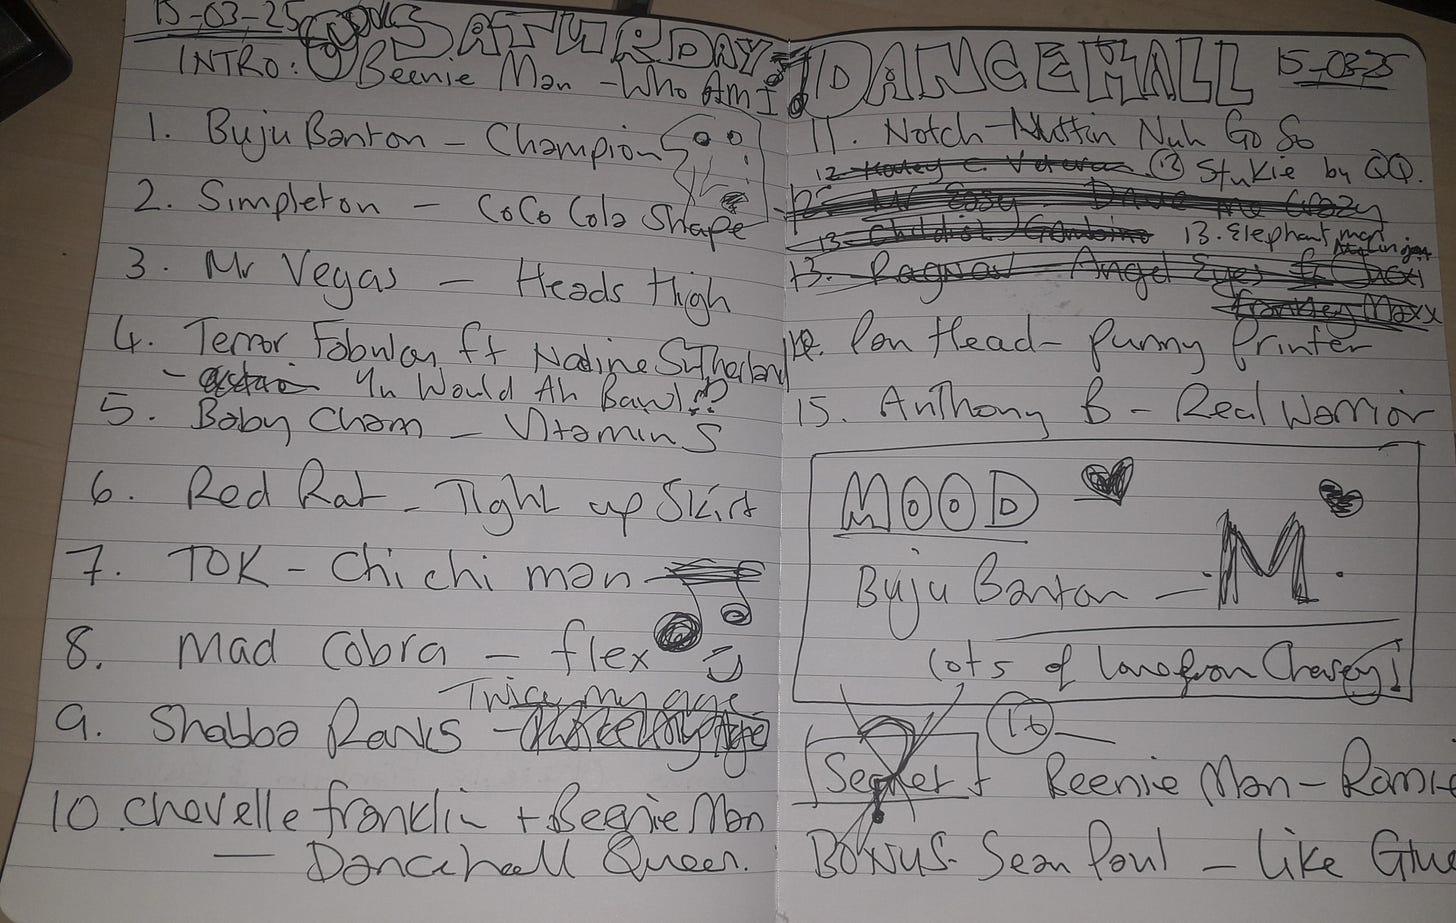 15-03-25
SATURDAY
INTRO: Beenie Man - Who Am I
1. Buju Banton - Champion
2. Simpleton - CoCo Cola Shape
3. Mr Vegas - Heads High
4. Terror Fabulous ft Nadine Sutherland
- Yu Would Ah Bawl!?
5. Baby Cham - Vitamin S
6. Red Rat - Tight up Skirt
7. TOK - Chi chi man
8. Mad Cobra - flex
Twice my age
9. Shabba Ranks -
10. Chevelle franklin + Beenie Man
- Dancehall Queen.
DANCEHALL 15-03-25
11. Notch - Nuttin Nuh Go So
12 Stukie by QQ.
13. Elephant man
14. Pan Head - Punny Printer
15. Anthony B - Real Warrior
MOOD
Buju Banton - .M.
Lots of love from
16
Beenie Man -
BONUS - Sean Paul - Like Glue